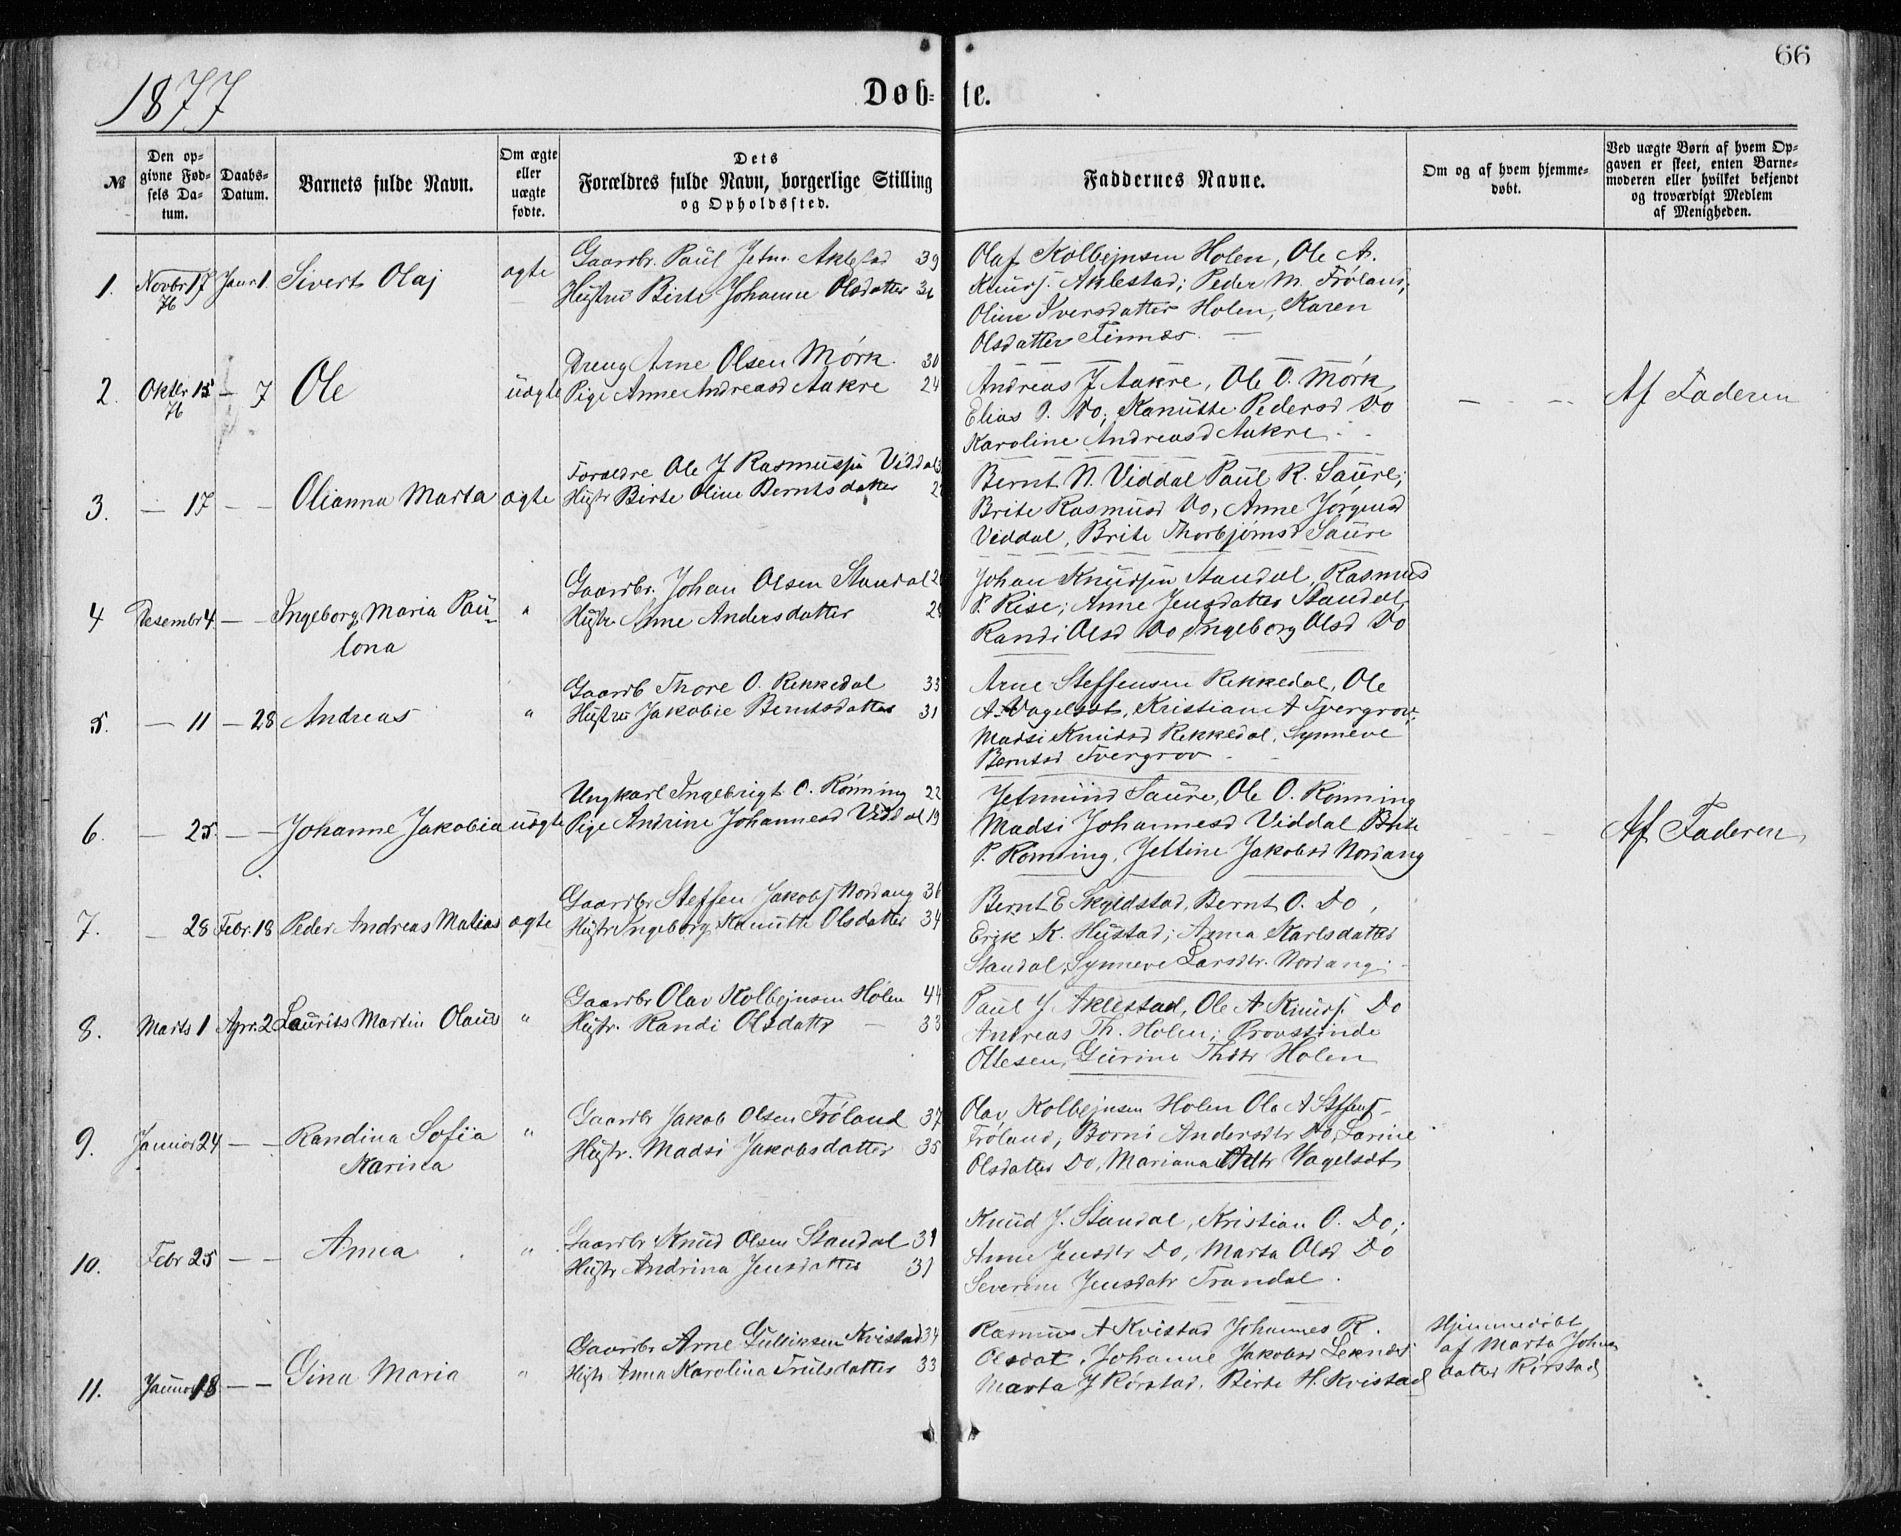 66
1877
Døb- te.
№
Den op-
givne Fød-
sels Da-
tum.
Daabs-
Datum.
Barnets fulde Navn.
Om ægte
eller
uægte
fødte.
Dets
Forældres fulde Navn, borgerlige Stilling
og Opholdssted.
Faddernes Navne.
Om og af hvem hjemme-
døbt.
Ved uægte Børn af hvem Op-
gaven er skeet, enten Barne-
moderen eller hvilket bekjendt
og troværdigt Medlem
af Menigheden.
1. Novbr 17 76 Janr 1. Sivert Olaj ægte
Gaardbr. Paul Jetm. Aklestad 39
Hustru Birte Johanne Olsdatter 36
Olaf Kolbejnsen Holen, Ole A.
Knuds. Aklestad; Peder M. Frøland;
Oline Iversdatter Holen, Karen
Olsdatter Finnæs. —
2. Oktbr 15 76 — 7 Ole uægte
Dreng Arne Olsen Mørk. 30
Pige Anne Andreasd Aakre 24
Andreas J Aakre, Ole O. Mørk,
Elias P. Do, Kanutte Pedersd Do
Karoline Andreasd Aakre.
— - -- Af Faderen
3. — 17 — — Olianna Marta ægte
Forældre Ole J Rasmussen Viddal
Hustr Birte Oline Berntsdatter
Bernt N. Viddal Paul R. Saure;
Brite Rasmusd Do, Anne Jørgensd
Viddal, Brite Thorbjørnsd Saure
4 Desembr 4 — — Ingeborg Maria Pau-
lona "
Gaardbr. Johan Olsen Standal
Hustr Anne Andersdatter
Johan Knudsen Standal, Rasmus
P. Rise; Anne Jensdatter Standal
Randi Olsd Do, Ingeborg Olsd Do
5. — 11 — 28 Andreas "
Gaardb Thore O. Rekkedal 33
Hustru Jakobie Berntsdatter 31
Arne Steffensen Rekkedal, Ole
A. Vagelsdt, Kristian A Tvergrov;
Madsi Knudsd Rekkedal, Synneve
Berntsd Tvergrov
6. — 25 — — Johanne Jakobia uægte
Ungkarl Ingebrigt O. Rønning 22
Pige Andrine Johannesd Viddal 19
Jetmund Saure, Ole O. Rønning
Madsi Johannesd Viddal Brite
P. Rønning, Jettine Jakobsd Nordang
Af Faderen
7. — 28 Febr. 18 Peder Andreas Matias ægte
Gaardbr Steffen Jakobs Nordang 36
Hustr Ingeborg Kanutte Olsdatter 34
Bernt E Skyldstad, Bernt O. Do,
Erik K. Hustad; Anna Karlsdatter
Standal, Synneve Larsdtr. Nordang.
8. Marts 1 Apr. 2 Laurits Martin Olaus "
Gaardbr Olav Kolbejnsen Holen 44
Hustr. Randi Olsdattr — 33
Paul J Aklestad, Ole A Knuds. Do
Andreas Th. Holen; Provstinde
Ottesen, Gurine Thdtr Holen
9. Januar 24 — — Randina Sofia
Karina "
Gaardbr Jakob Olsen Frøland 37
Hustr. Madsi Jakobsdatter 35
Olav Kolbejnsen Holen Ole A Steffens-
Frøland, Borni Andersdtr Do, Larine
Olsdatter Do, Mariana Adtr Vagelsdt
10. Febr 25 — — Anna "
Gaardbr Knud Olsen Standal 31
Hustr Andrina Jensdatter 31
Knud J. Standal, Kristian O. Do;
Anne Jensdtr Do, Marta Olsd Do
Severine Jensdatr Trandal.
11. Januar 18 — — Gina Maria "
Gaardbr Arne Gulliksen Kvistad 34
Hustr Anna Karolina Trulsdatter 33
Rasmus A Kvistad Johannes R.
Olsdat, Johanne Jakobsd Leknæs
Marta J Rørstad. Birte H. Kvistad
Hjemmedøbt
af Marta Johns
datter Rørstad